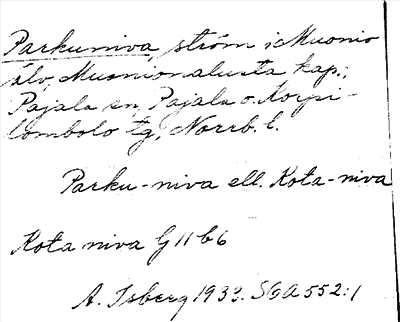 Parkuniva, ström i Muonio
älv, Muonionalusta kap.,
Pajala sn, Pajala o. Korpi-
lombolo tg, Norrb. l.
Parku-niva ell. Kota-niva
Kota niva G 11 b 6
A. Isberg 1933. SOA 552:1